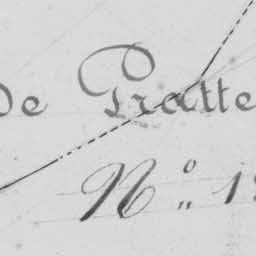 De Pratte
No. 1